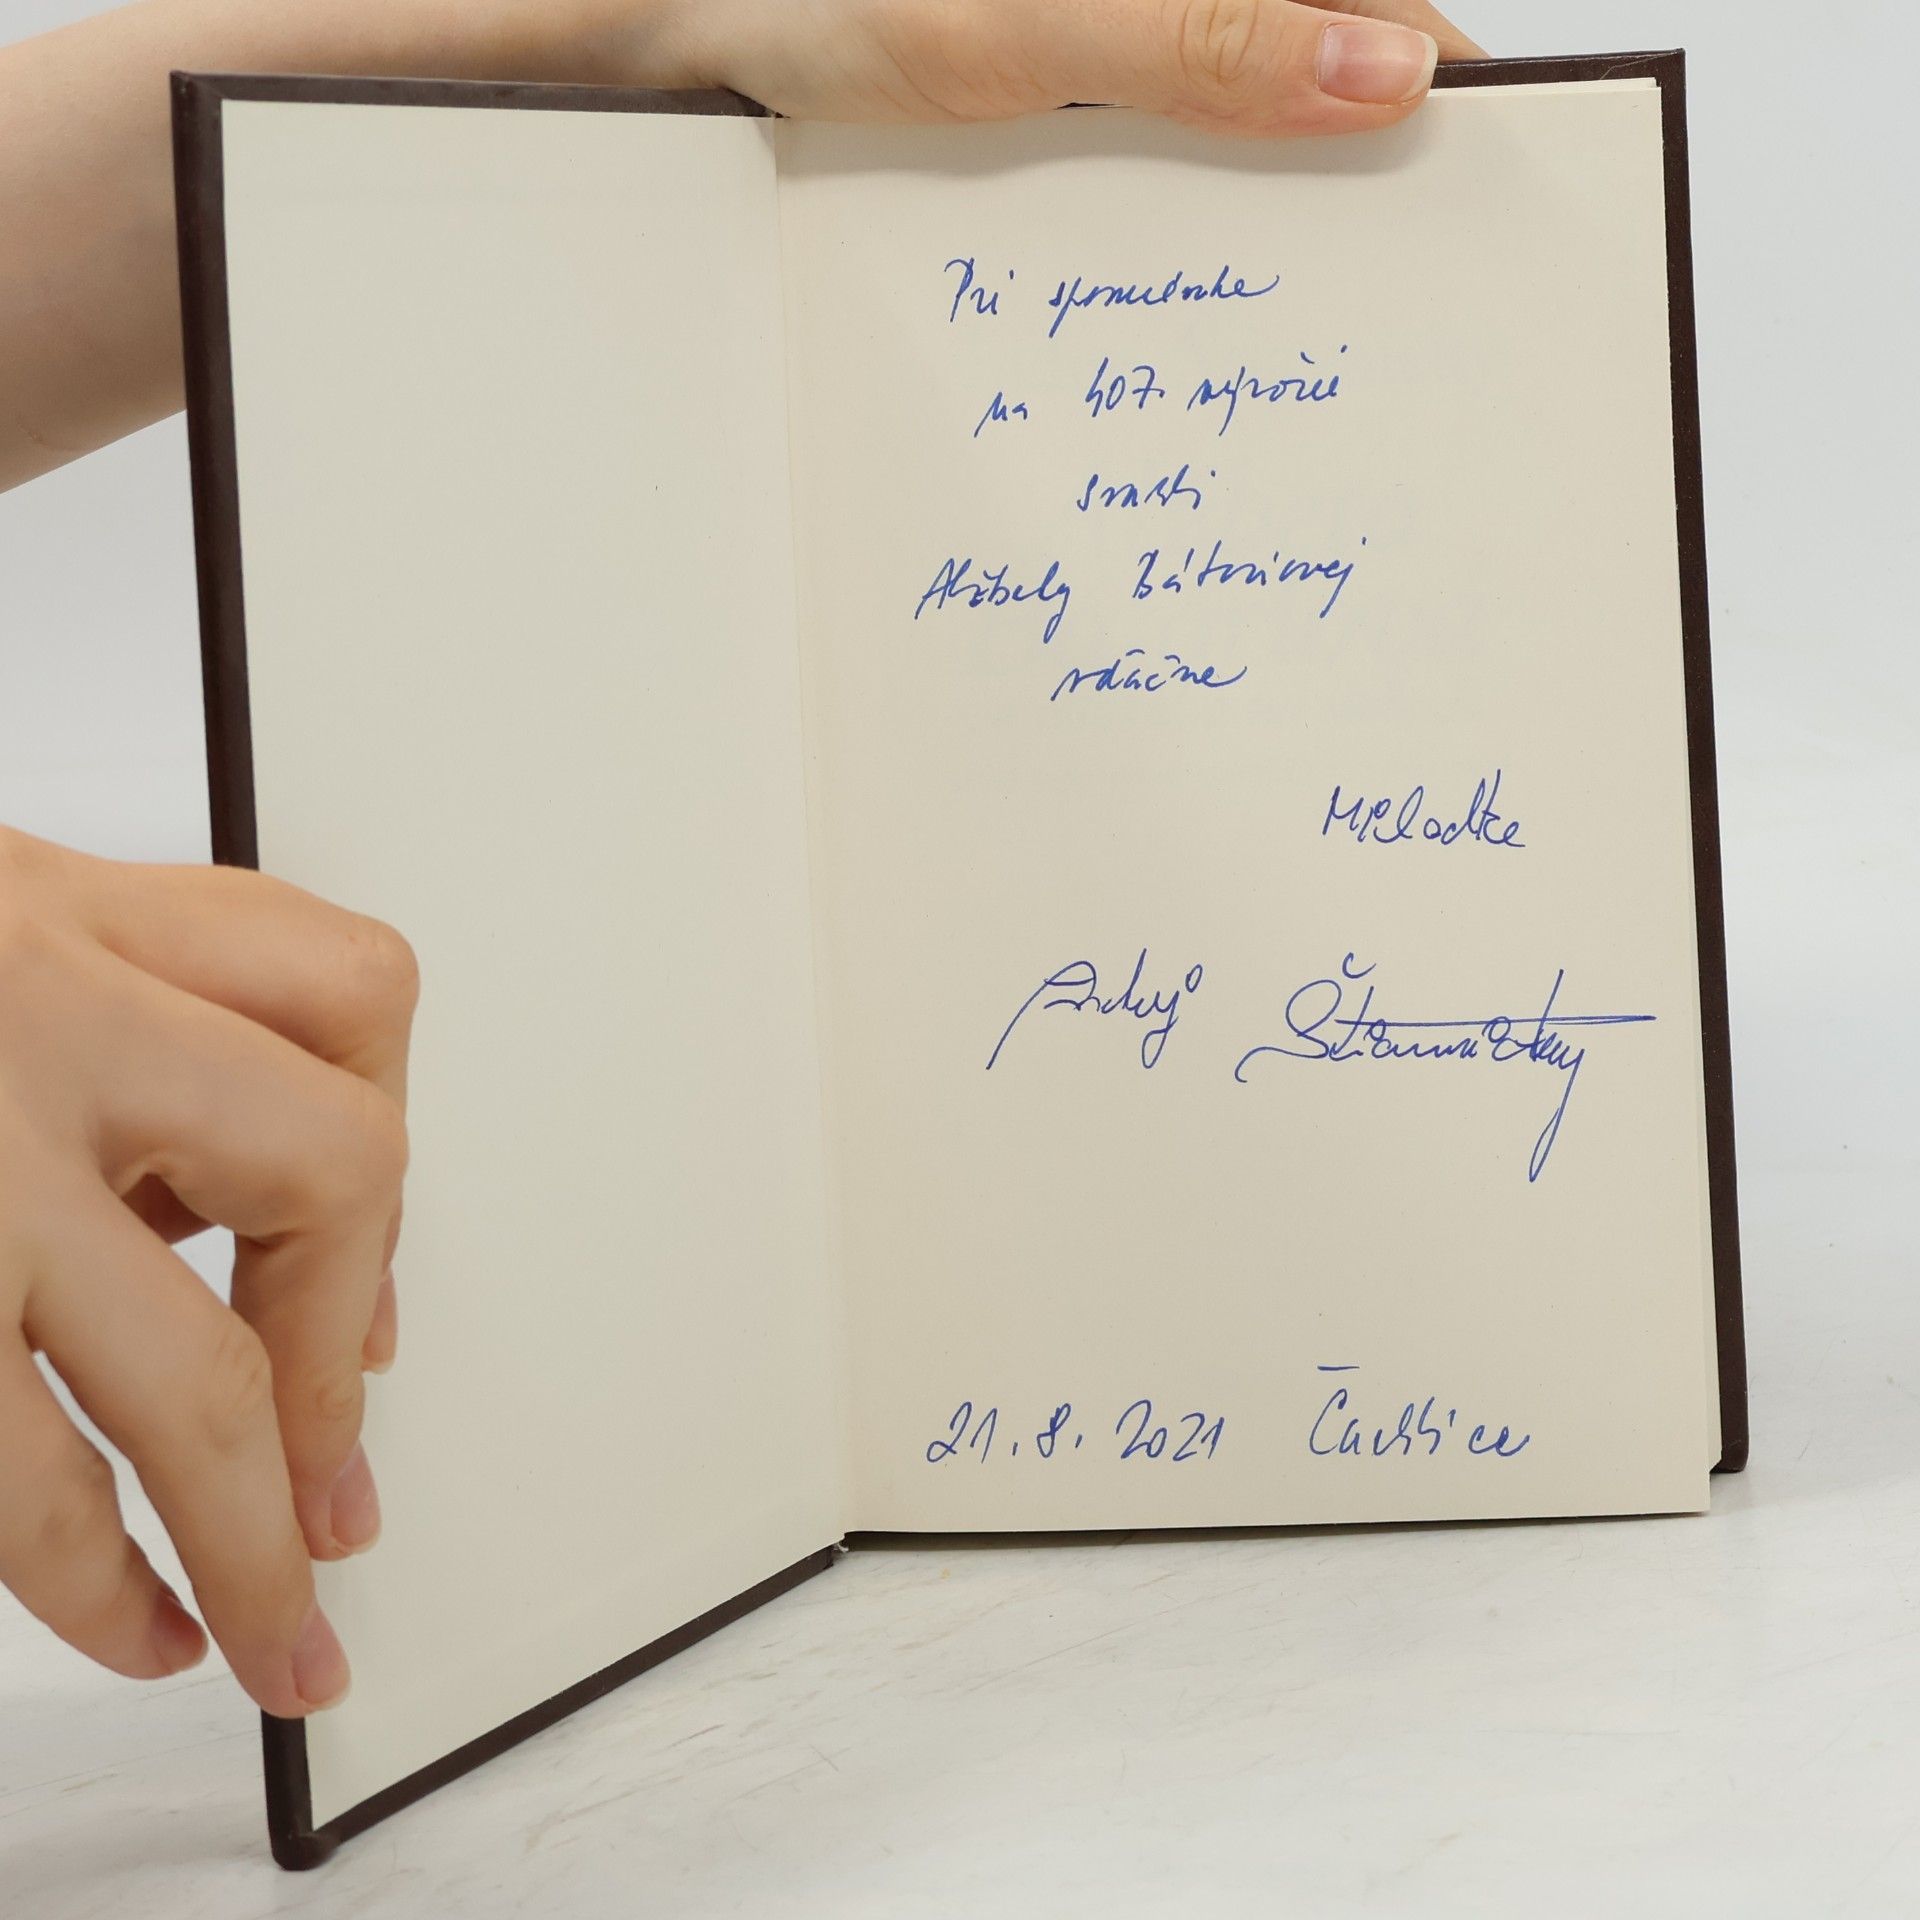 Pri spomienke
na 407. výročie
smrti
Alžbety Bátoriovej
vďačne
Miladke
Andrej Štiavnický
21. 8. 2021 Čachtice